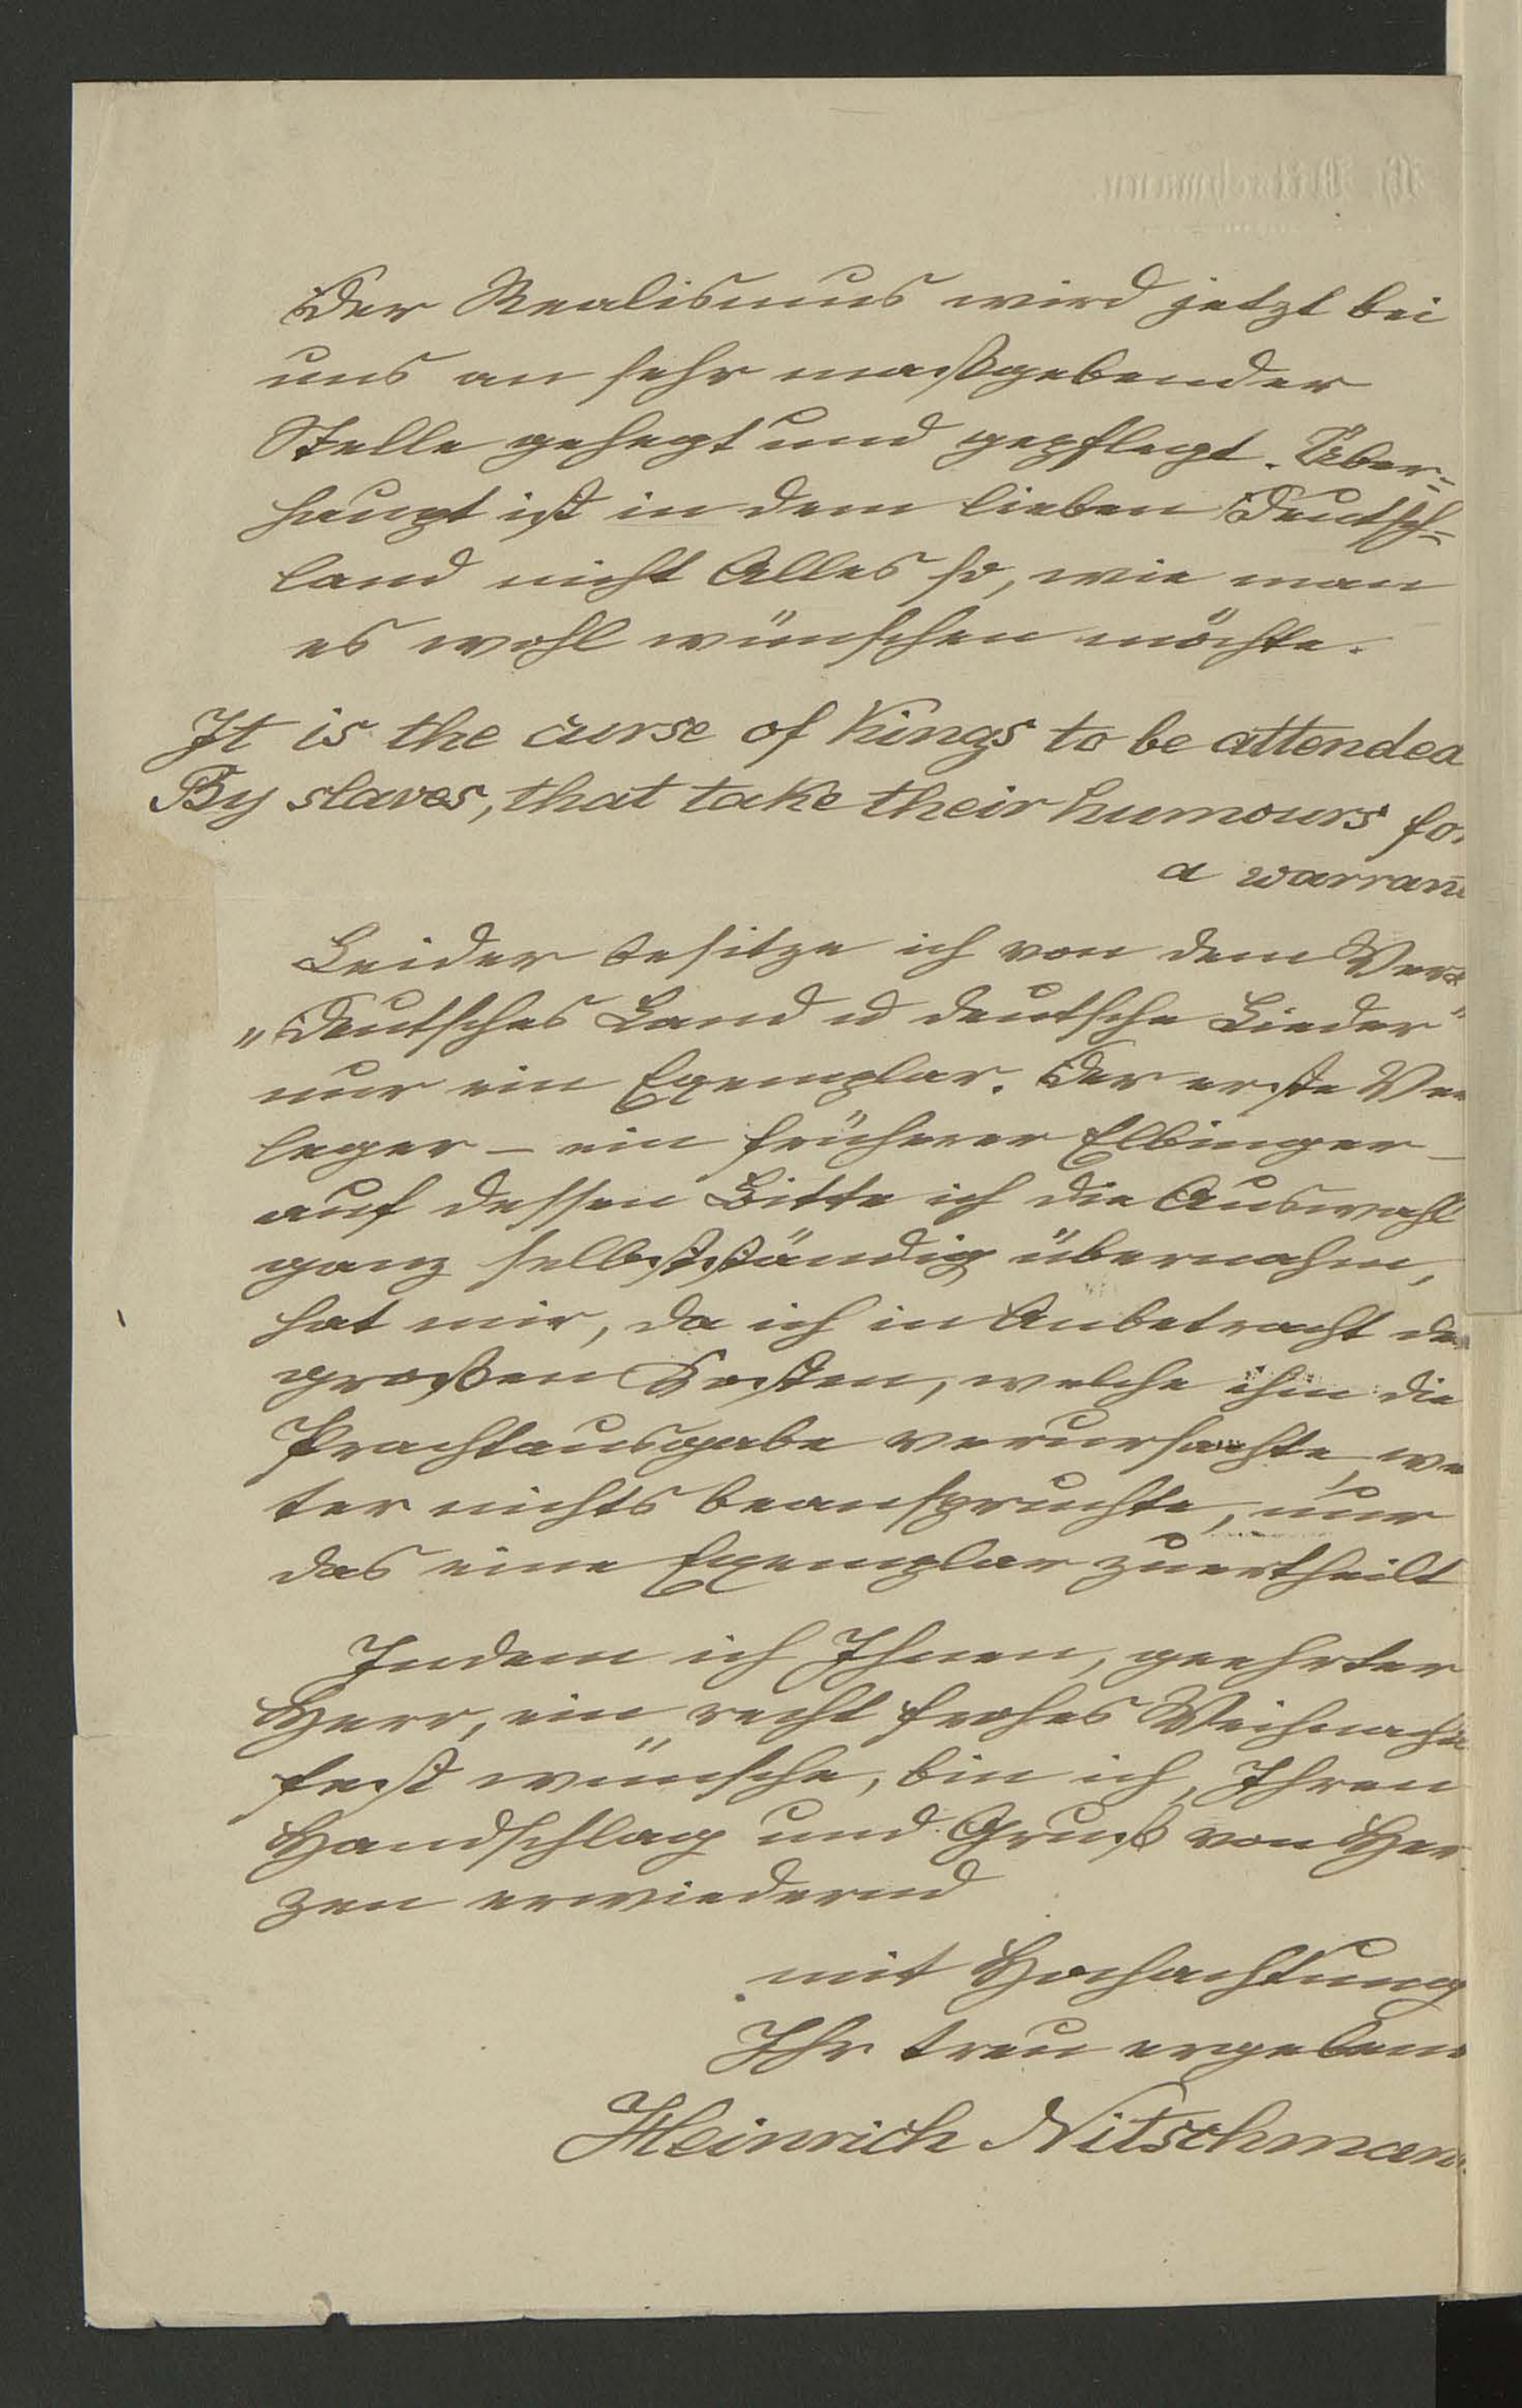 Der Realismus wird jetzt bei
uns an sehr maßgebender
Stelle gehegt und gepflegt. Über-
haupt ist in dem lieben Deutsch-
land nicht Alles so, wie man
es wohl wünschen möchte.
It is the curse of Kings to be attended
By slaves, that take their humours for
a warran
Leider besitze ich von dem Werk
„Deutsches Land u deutsche Lieder"
nur ein Exemplar. Der erste Ver
leger – ein früherer Elbinger –
auf dessen Bitte ich die Auswahl
ganz selbstständig übernahm,
hat mir, da ich in Anbetracht der
großen Kosten, welche ihm die
Prachtausgabe verursachte, wei
ter nichts beanspruchte, nur
das eine Exemplar zuertheilt
Indem ich Ihnen, geehrter
Herr, ein recht frohes Weihnachts
fest wünsche, bin ich, Ihren
Handschlag und Gruß von Her
zen erwiedernd
mit Hochachtung
Ihr treu ergeben
Heinrich Nitschmann